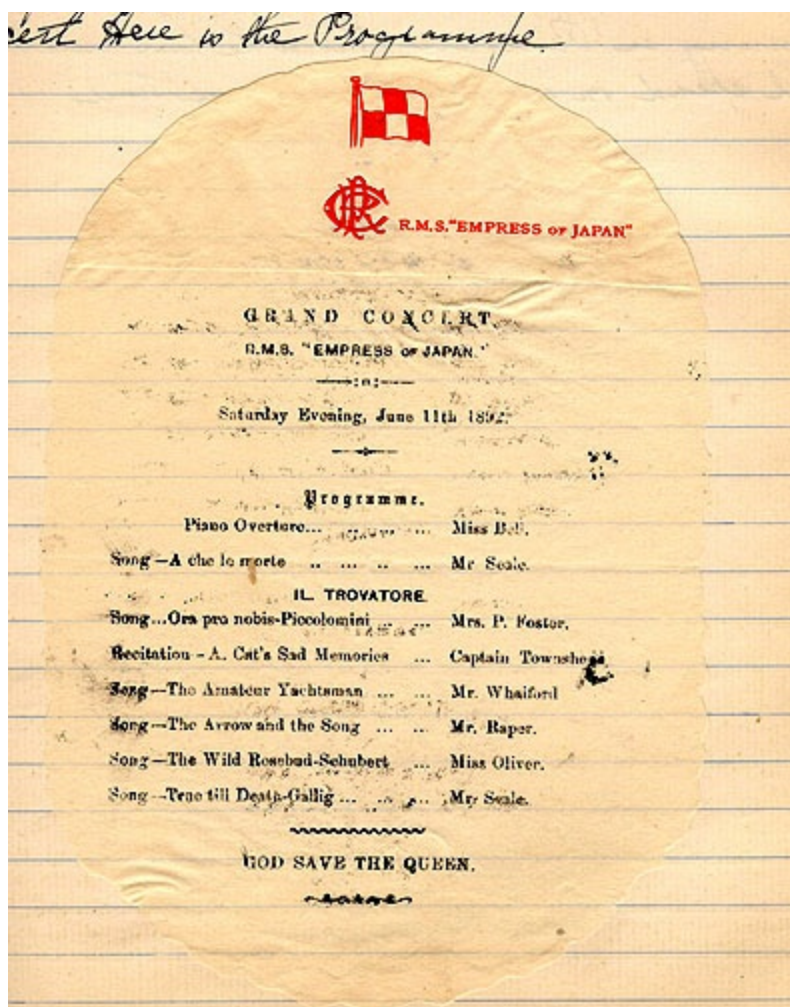 cert Here is the Programme
R.M.S. "EMPRESS OF JAPAN"
GRAND CONCERT.
R.M.S. "EMPRESS OF JAPAN."
Saturday Evening, June 11th 1892.
Programme.
Piano Overture... ... ... ... Miss
Song—A che le morte .. ... .. ... Mr Seale.
IL TROVATORE
Song...Ora pro nobis-Piccolomini ... ... Mrs. P. Foster.
Recitation - A. Cat's Sad Memories ... Captain
Song—The Amateur Yachtsman ... ... Mr. Whaiford
Song—The Arrow and the Song ... ... Mr. Raper.
Song—The Wild Rosebud-Schubert ... Miss Oliver.
Song—True till Death-Gallig ... ... ... Mr. Seale.
GOD SAVE THE QUEEN.